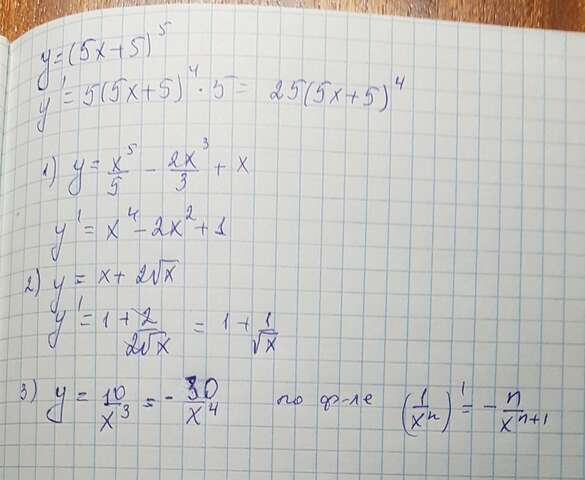 y=(5x+5)⁵
y'=5(5x+5)⁴·5= 25(5x+5)⁴
1) y=x⁵/5 - 2x³/3 + x
y'=x⁴-2x²+1
2) y=x+2√x
y'=1+2/(2√x) = 1+1/√x
3) y=10/x³=-30/x⁴ по ф-ле (1/xⁿ)'=-n/xⁿ⁺¹